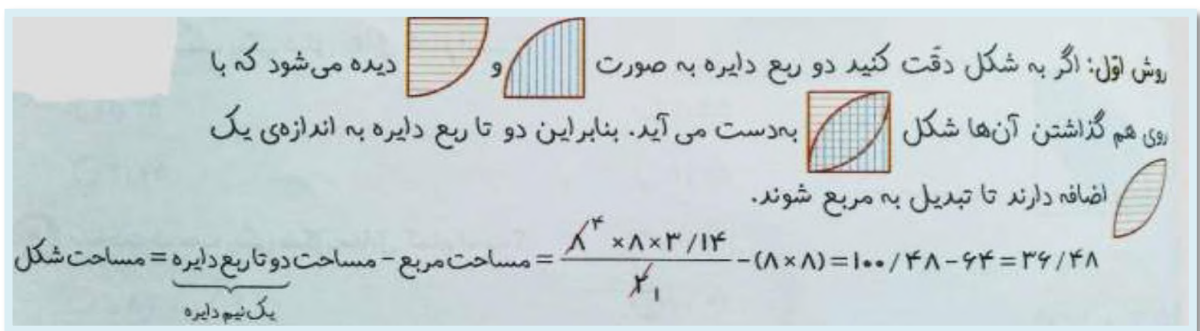 روش اوّل: اگر به شکل دقّت کنید دو ربع دایره به صورت و دیده می‌شود که با
روی هم گذاشتن آن‌ها شکل به‌دست می‌آید. بنابراین دو تا ربع دایره به اندازه‌ی یک
اضافه دارند تا تبدیل به مربع شوند.
مساحت شکل = مساحت دو تا ربع دایره - مساحت مربع = ۸۴ × ۸ × ۳/۱۴ / ۲۱ - (۸ × ۸) = ۱۰۰/۴۸ - ۶۴ = ۳۶/۴۸
یک نیم دایره